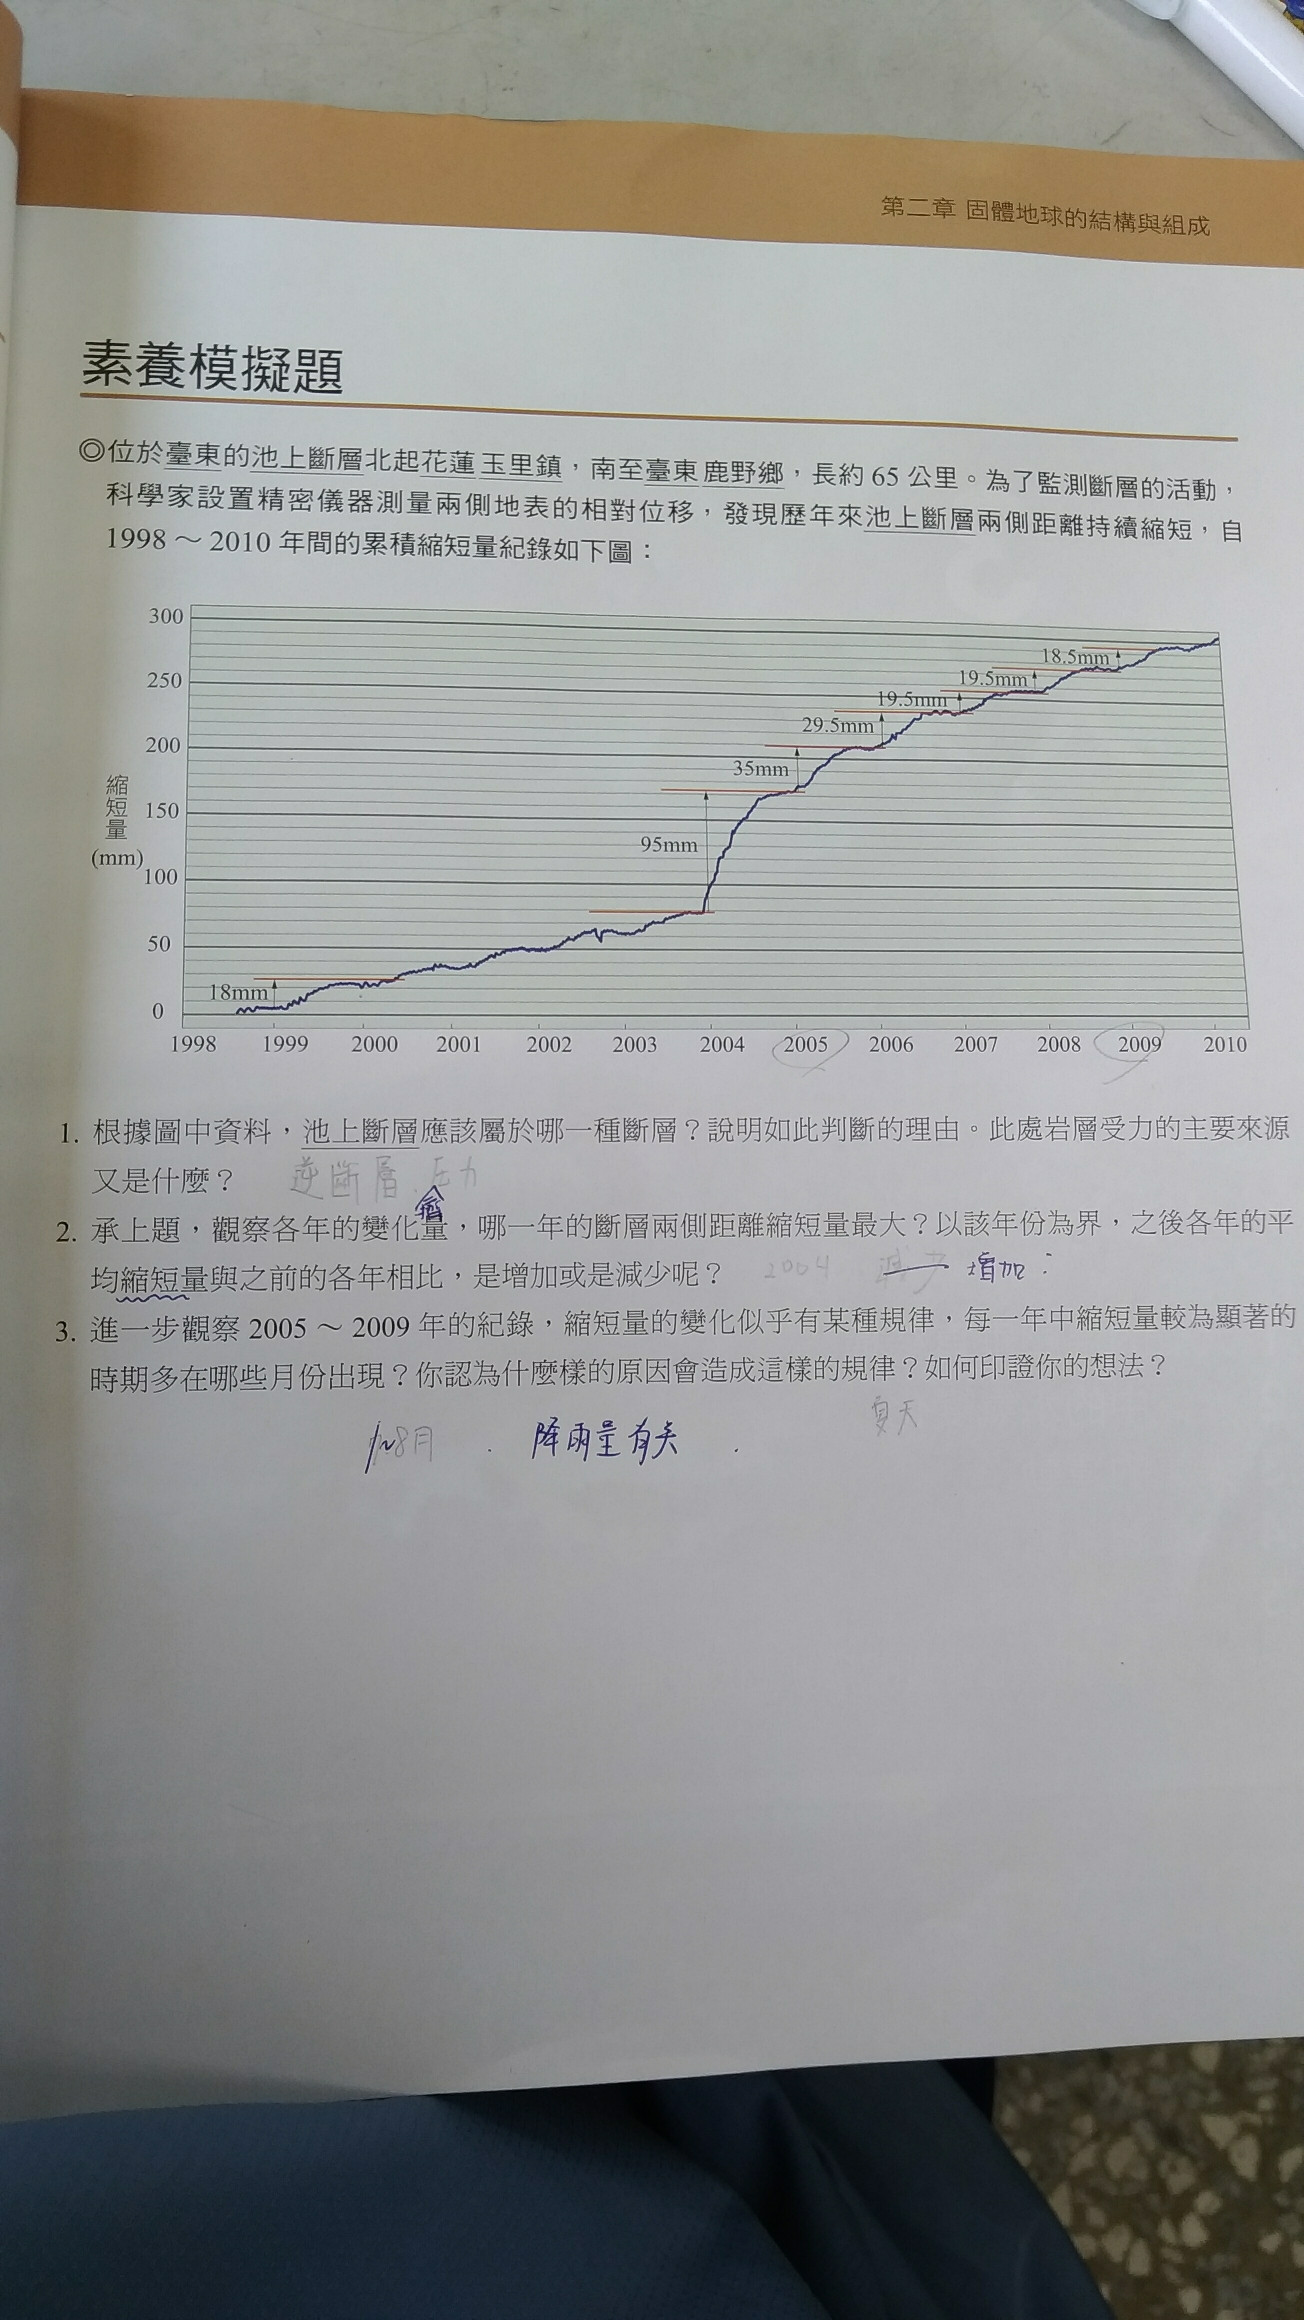 第二章 固體地球的結構與組成
素養模擬題
◎位於臺東的池上斷層北起花蓮玉里鎮，南至臺東鹿野鄉，長約 65 公里。為了監測斷層的活動，
科學家設置精密儀器測量兩側地表的相對位移，發現歷年來池上斷層兩側距離持續縮短，自
1998～2010 年間的累積縮短量紀錄如下圖：
縮短量
(mm)
300
250
200
150
100
50
0
18mm
95mm
35mm
29.5mm
19.5mm
19.5mm
18.5mm
1998 1999 2000 2001 2002 2003 2004 2005 2006 2007 2008 2009 2010
1. 根據圖中資料，池上斷層應該屬於哪一種斷層？說明如此判斷的理由。此處岩層受力的主要來源
又是什麼？ 逆斷層 壓力
2. 承上題，觀察各年的變化量，哪一年的斷層兩側距離縮短量最大？以該年份為界，之後各年的平
均縮短量與之前的各年相比，是增加或是減少呢？ 2004 減少 增加
3. 進一步觀察 2005～2009 年的紀錄，縮短量的變化似乎有某種規律，每一年中縮短量較為顯著的
時期多在哪些月份出現？你認為什麼樣的原因會造成這樣的規律？如何印證你的想法？
夏天
8月 降雨量有关